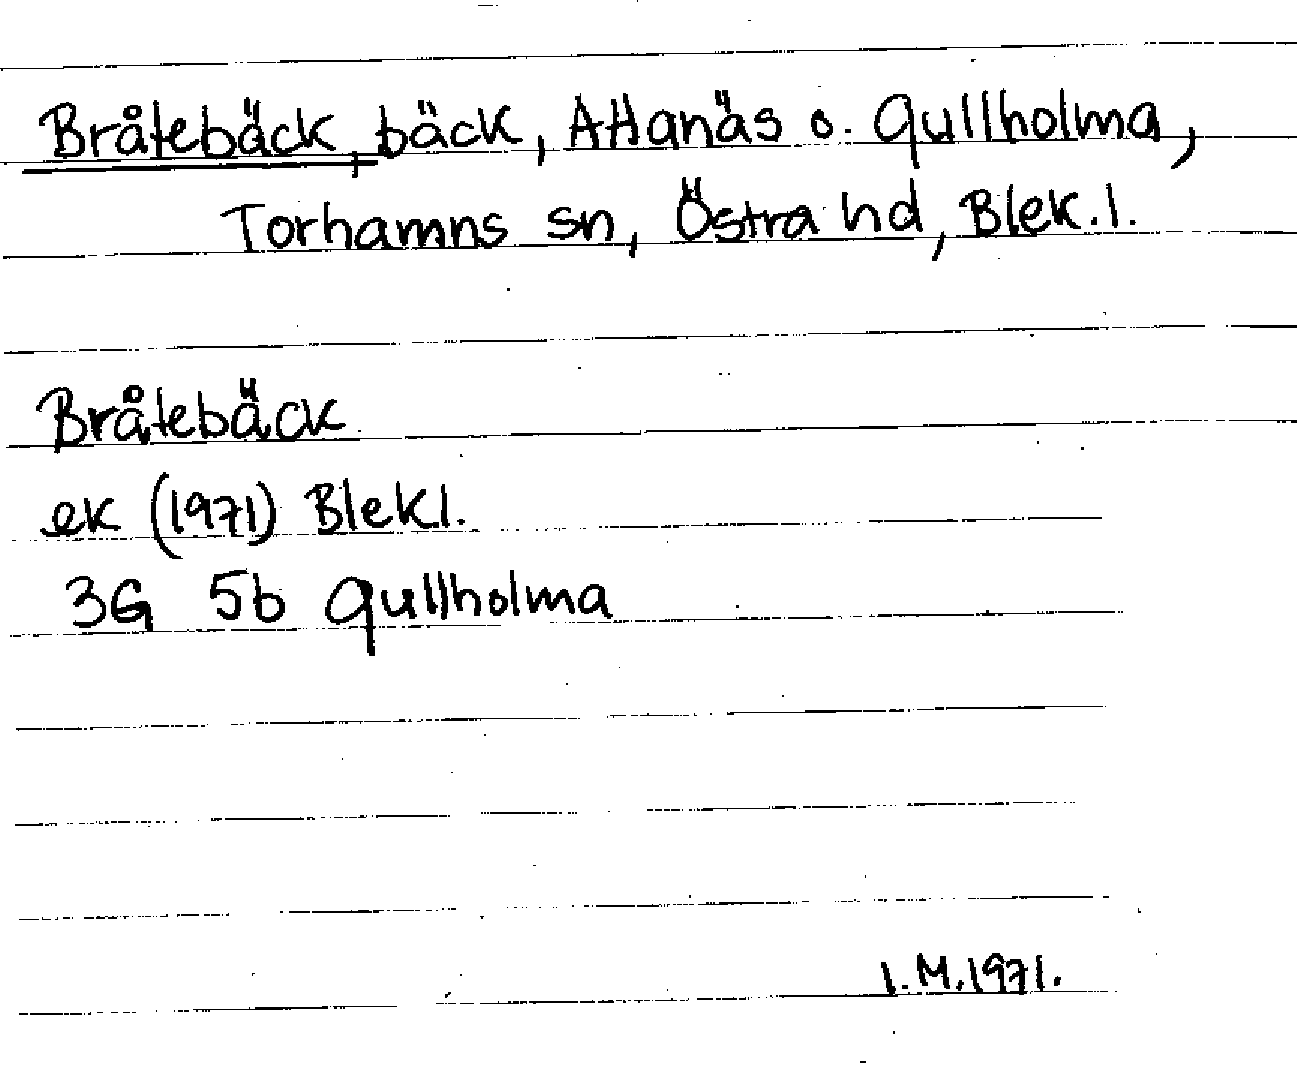 Bråtebäck, bäck, Attanäs o. Gullholma,
Torhamns sn, Östra hd, Blek. l.
Bråtebäck
ek (1971) Blekl.
3G 5b Gullholma
I.M.1971.